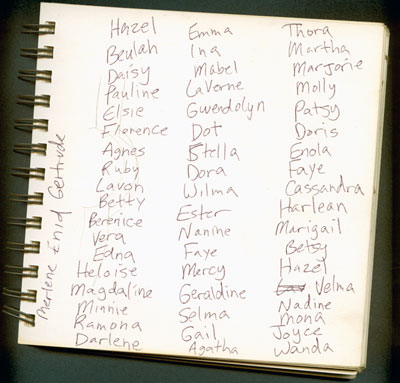 Hazel
Beulah
Daisy
Pauline
Elsie
Florence
Agnes
Ruby
Lavon
Betty
Berenice
Vera
Edna
Heloise
Magdaline
Minnie
Ramona
Darlene
Emma
Ina
Mabel
LaVerne
Gwendolyn
Dot
Stella
Dora
Wilma
Ester
Nanine
Faye
Mercy
Geraldine
Selma
Gail
Agatha
Thora
Martha
Marjorie
Molly
Patsy
Doris
Enola
Faye
Cassandra
Harlean
Marigail
Betsy
Hazel
Velma
Nadine
Mona
Joyce
Wanda
Enid Gertrude